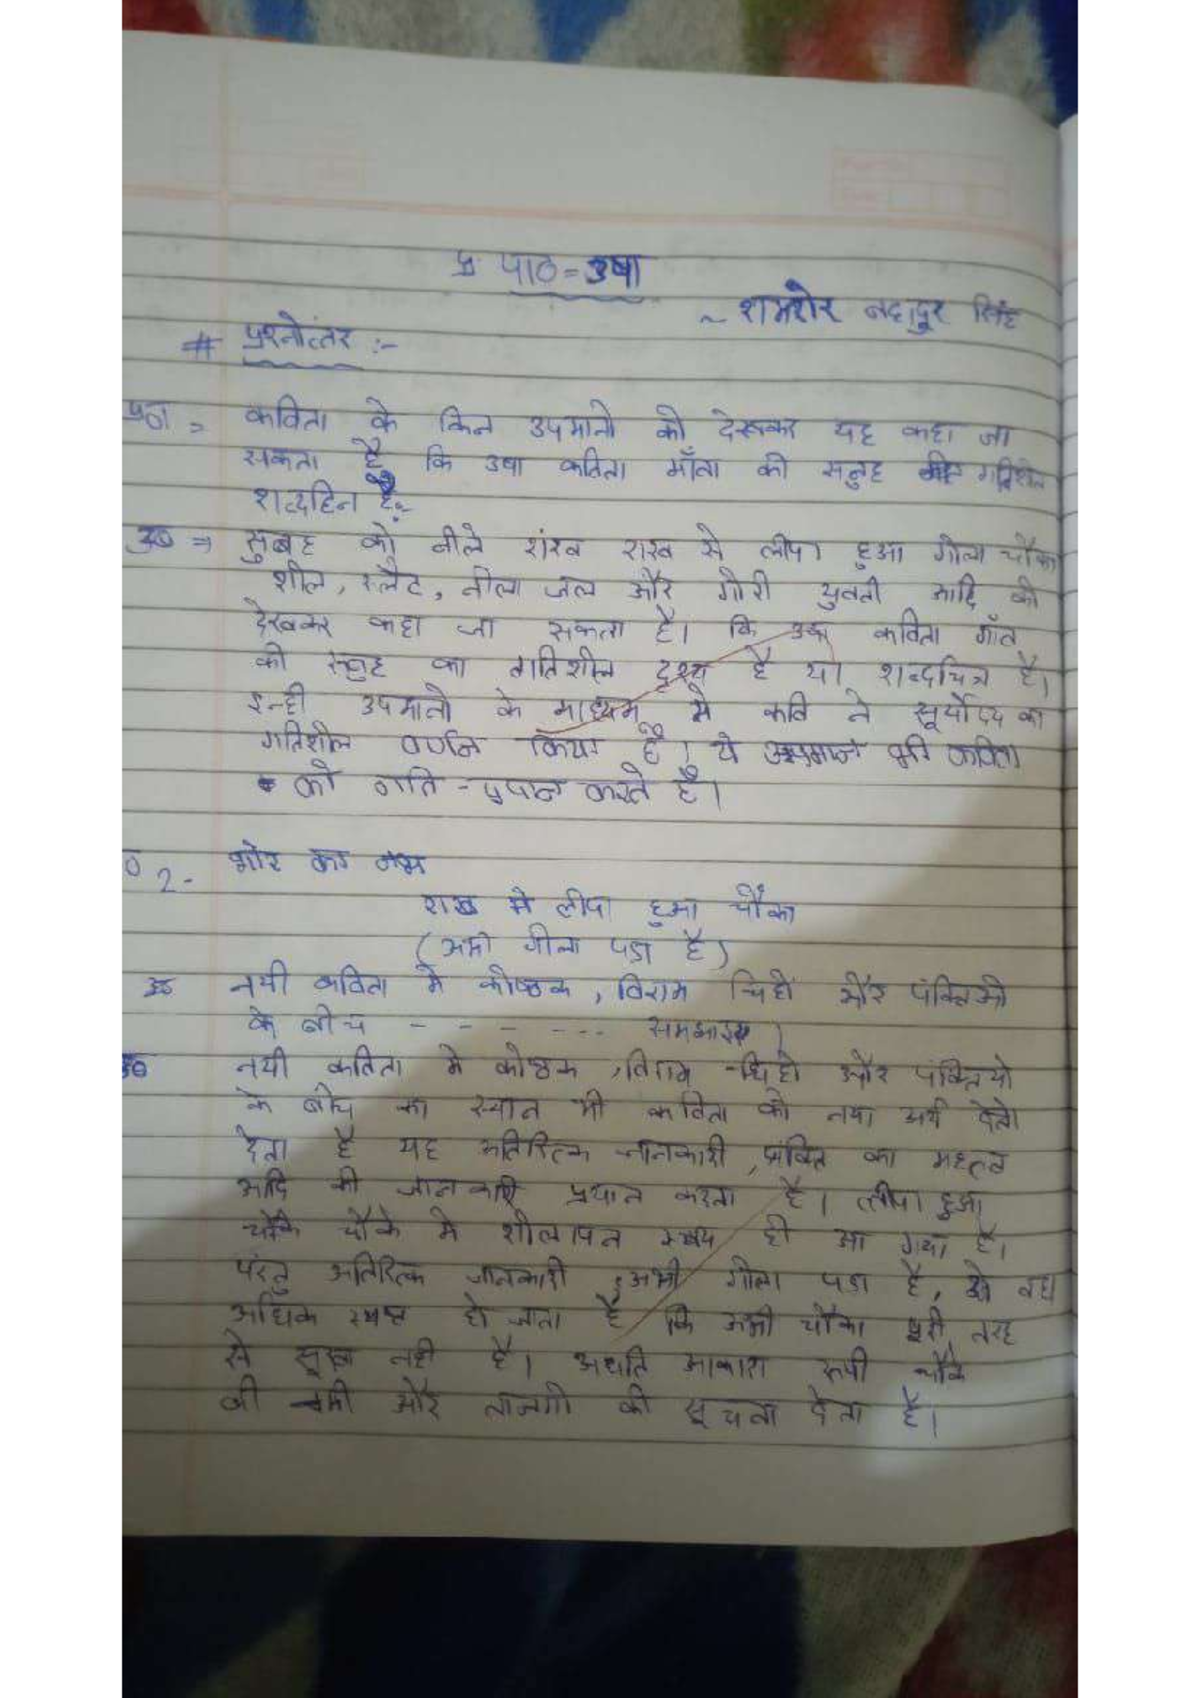 प्र पाठ = उषा
~ शमशेर बहादुर सिंह
# प्रश्नोत्तर :-
प्र01 = कविता के किन उपमानो को देखकर यह कहा जा
सकता है कि उषा कविता गाँव की सुबह गतिशील
शब्दहिन है।
उ0 => सुबह को नीले शंख राख से लीपा हुआ गीला चौका
शील, स्लेट, नीला जल और गोरी युवती आदि को
देखकर कहा जा सकता है। कि उषा कविता गाँव
की सुबह का गतिशील दृश्य है या शब्दचित्र है।
इन्ही उपमानो के माध्यम से कवि ने सूर्योदय का
गतिशील वर्णन किया है। ये उपमान भी कविता
को गति - प्रदान करते है।
0 2- भोर का नभ
राख से लीपा हुआ चौका
(अभी गीला पडा है)
उ0 नयी कविता मे कोष्ठक, विराम चिहो और पंक्तिओ
के बीच - - - - - - - समझाइए।
उ0 नयी कविता मे कोष्ठक, विराम चिहो और पंक्तियो
के बीच का स्थान भी कविता को नया अर्थ देतो
देता है यह अतिरिक्त जानकारी, पंक्ति का महत्त्व
आदि की जानकारी प्रधान करता है। लीपा हुआ
चौके चौके मे गीलापन स्वयं ही आ गया है।
परंतु अतिरिक्त जानकारी अभी गीला पडा है, से वहा
अधिक स्पष्ट हो जाता है कि अभी चौका पूरी तरह
से सूखा नही है। अर्थाति आकाश रूपी चौके
की नमी और ताजगी की सूचना देता है।